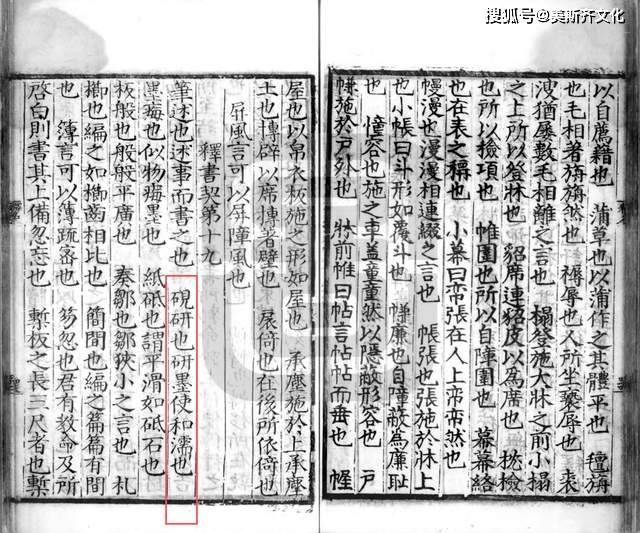 搜狐号@美斯齐文化
以自薦藉也　蒲草也以蒲作之其體平也　氊旃
也毛相著旃旃然也　褥辱也人所坐䙝辱也　裘
溲猶屢數毛相離之言也　榻登施大牀之前小榻
之上所以登牀也　貂席連貂皮以為席也　枕檢
也所以檢項也　帷圍也所以自障圍也　幕幕絡
也在表之稱也　小幕曰帟張在人上帟帟然也
幔漫也漫漫相連綴之言也　帳張也張施於牀上
也小帳曰斗形如覆斗也　㡘廉也自障蔽為廉恥
也　幢容也施之車蓋童童然以隱蔽形容也　戶
㡘施於戶外也　牀前帷曰帖言帖帖而垂也　幄
屋也以帛衣板施之形如屋也　承塵施於上承塵
土也　搏辟以席搏著壁也　扆倚也在後所依倚也
屏風言可以屏障風也
釋書契第十九
筆述也述事而書之也　硯研也研墨使和濡也
墨痗也似物痗墨也　紙砥也謂平滑如砥石也
板般也般般平廣也　奏鄒也鄒狹小之言也　札
櫛也編之如櫛齒相比也　簡間也編之篇篇有間
也　簿言可以簿疏密也　笏忽也君有教命及所
啓白則書其上備忽忘也　槧板之長三尺者也槧